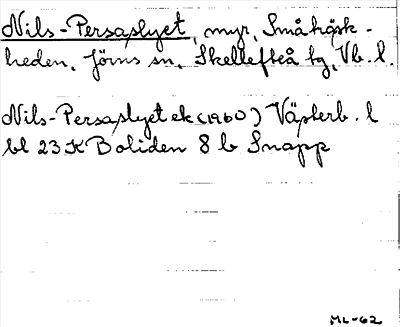 Nils-Persaslyet, myr, Småträsk-
heden, Jörns sn, Skellefteå tg, Vb. l.
Nils-Persaslyet ek (1960) Västerb. l
bl 23 K Boliden 8 b Snapp
ML-62